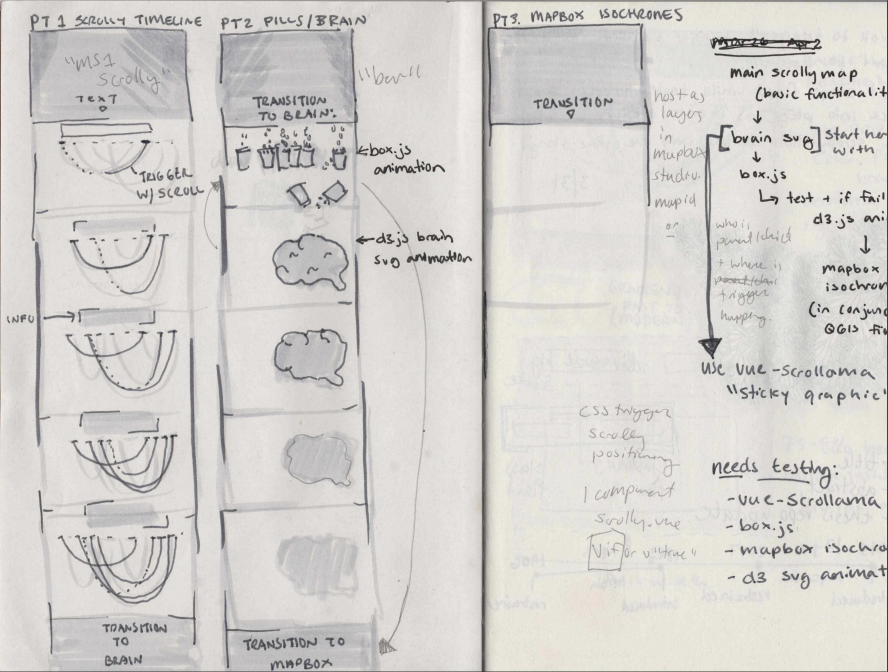 PT 1 SCROLLY TIMELINE
"MS1
Scrolly"
TEXT
TRIGGER
W/ SCROLL
INFO
TRANSITION
TO
BRAIN
PT2 PILLS/BRAIN
TRANSITION
TO BRAIN:
box.js
animation
d3js brain
svg animation
TRANSITION TO
MAPBOX
PT3. MAPBOX ISOCHRONES
TRANSITION
host as
layers
in
mapbox
studio.
map id
or
who is
parent/child
+ where is
trigger
happening.
main scrolly map
(basic functionalit
brain svg
start he
with
box.js
test + if fail
d3.js ani
mapbox
isochron
(in conjunc
QGIS
use vue-scrollama
"sticky graphic"
CSS trigger
scrolly
positioning
1 component
scrolly.vue
v if or v "true"
needs testing:
-vue-scrollama
-box.js
-mapbox isochro
-d3 svg animat